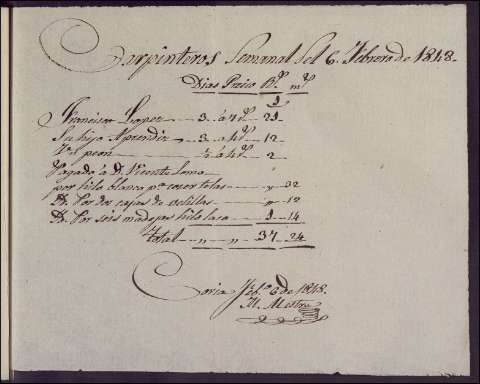 Carpinteros Semanal del 6. Febrero de 1848.
Dias Precio R.s m.s
1
Francisco Lopez 3 á 7 r.s 21
Su hijo Aprendiz 3 á 4 r.s 12
peon ½ á 4 r.s 2
Pagado á D. Vicente
por hilo blanco p.a coser telas " 32
Yd. Por dos cajas de velillas " 12
Yd. Por seis madejas hilo laso 1 14
Total " " 37 24
Coria Feb.o 6 de 1848.
M. Mestre